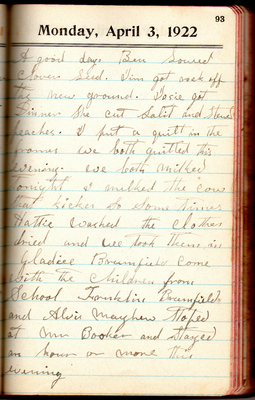 93
Monday, April 3, 1922
A good day. Ben Sowed
Clover Seed. Jim got rock off
the new ground. Josie got
dinner She cut Salit and
peaches. I put a quilt in the
frames we both quilted this
evening. we both milked
tonight I milked the cow
that kickes So some times
Hattie washed the clothes
dried and we took them in
Gladiee Brumfield Come
with the Children from
School Franklin Brumfield
and Alvis Mayhew Stoped
at Mr Booker and Stayed
an hour or more this
evening